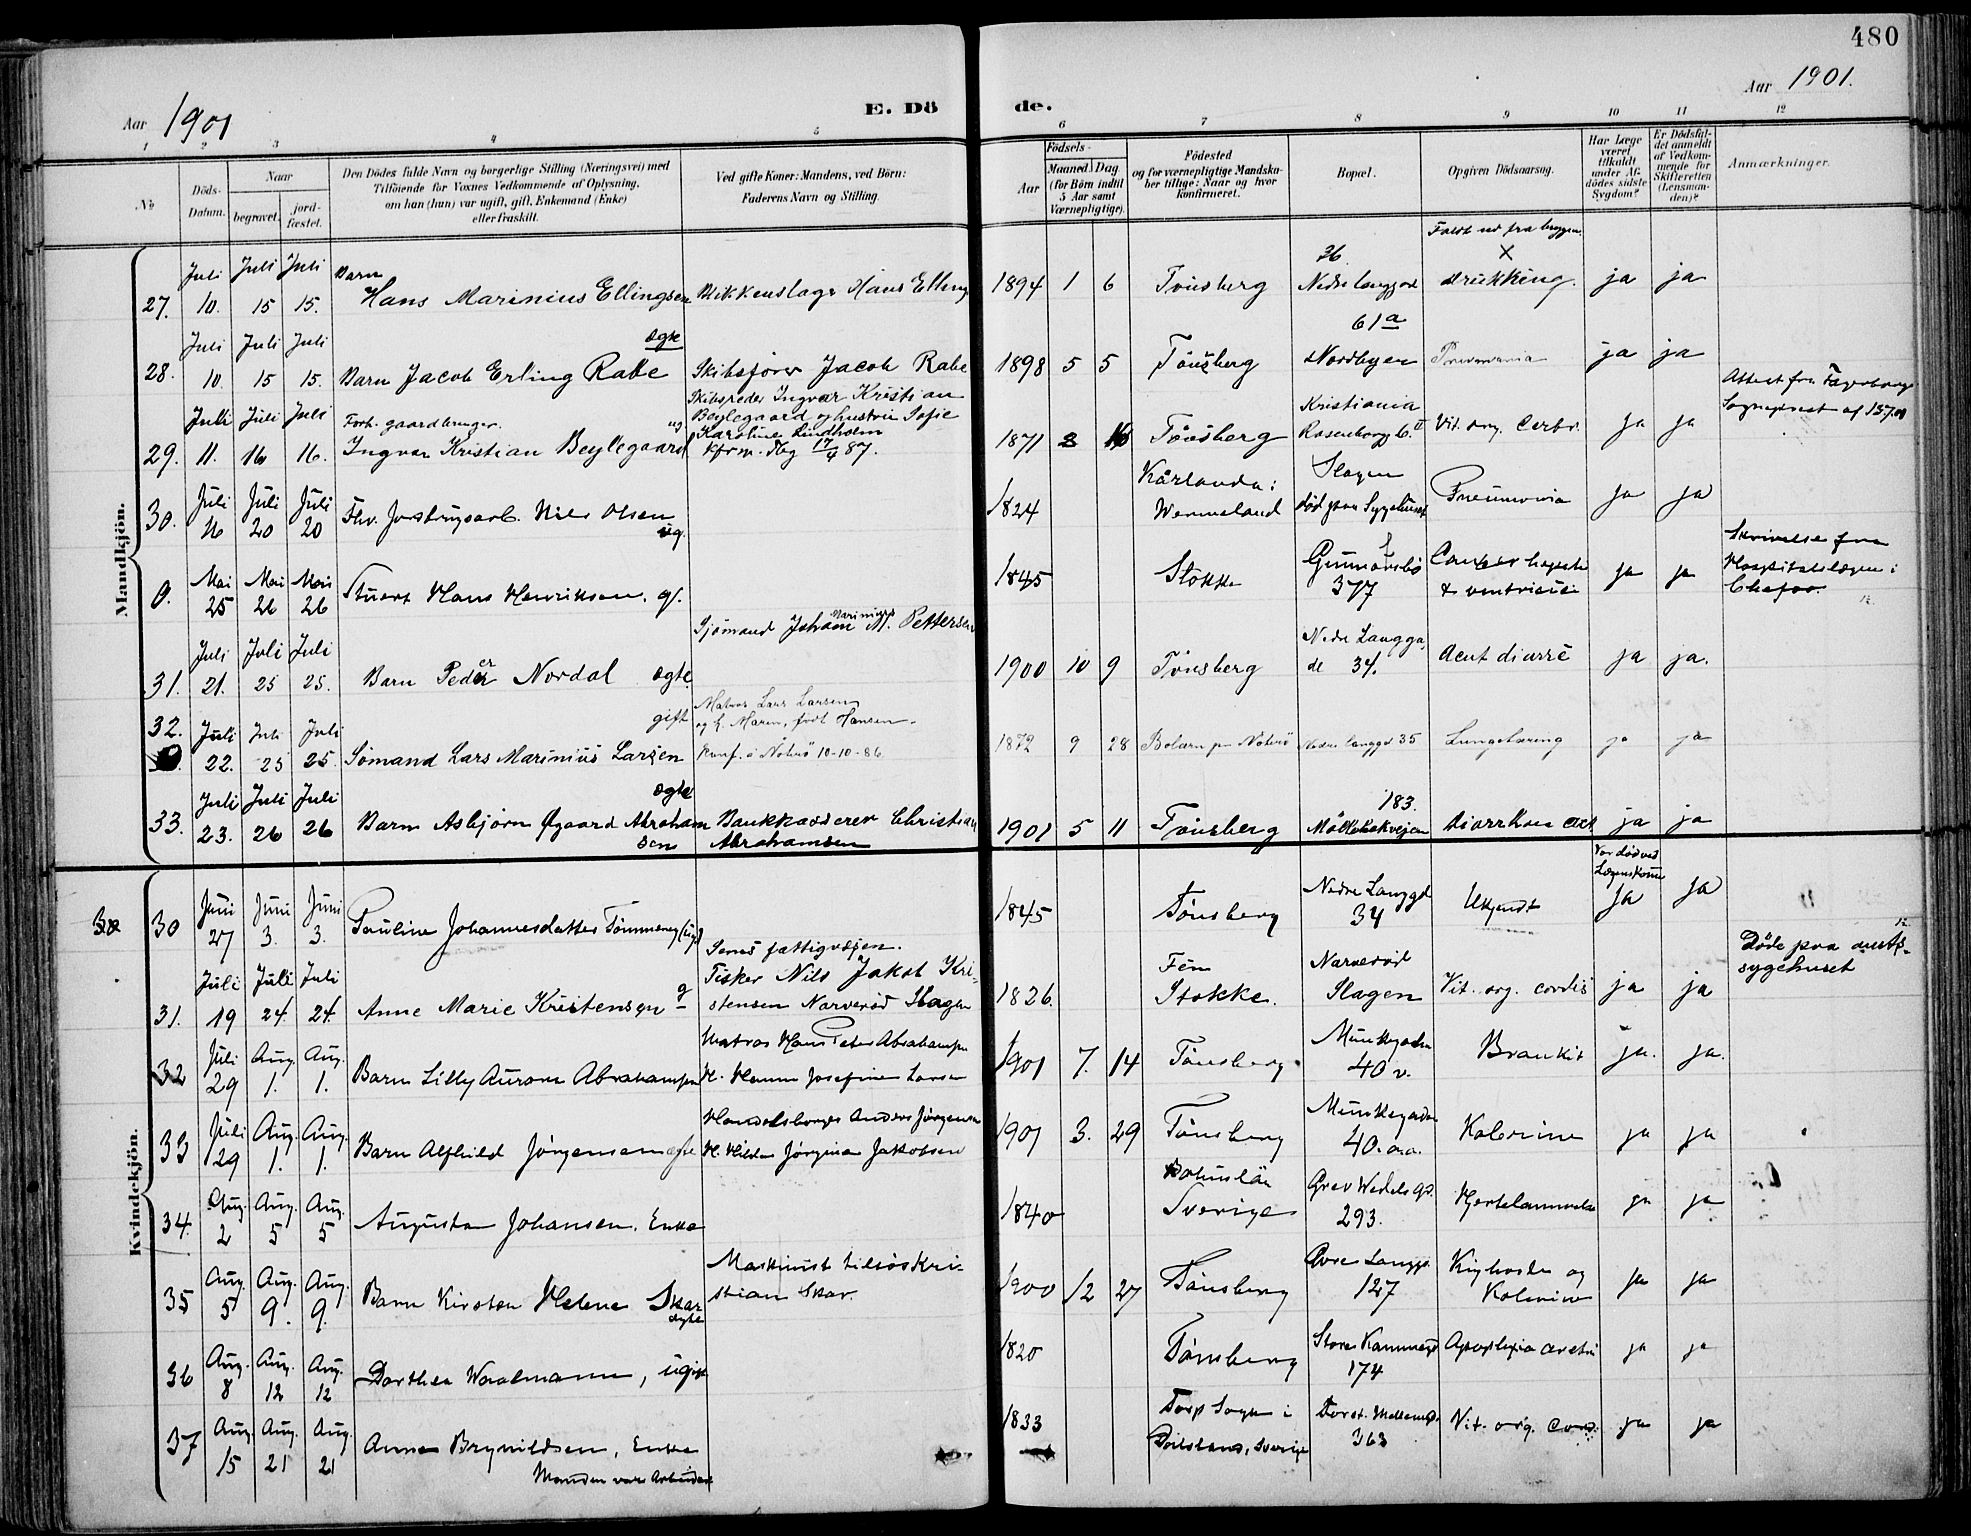 480
Aar 1901
E. Dö de.
Aar 1901.
1 2 3 4 5 6 7 8 9 10 11 12
No
Döds-Datum.
Naar
begravet.
jord-fæstet.
Den Dödes fulde Navn og borgerlige Stilling (Næringsvei) med
Tilföiende for Voxnes Vedkommende af Oplysning,
om han (hun) var ugift, gift, Enkemand (Enke)
eller fraskilt.
Ved gifte Koner: Mandens, ved Börn:
Faderens Navn og Stilling.
Födsels-
Aar
Maaned Dag
(for Börn indtil
5 Aar samt
Værnepligtige).
Födested
og for værnepligtige Mandska-
ber tillige: Naar og hvor
konfirmeret.
Bopæl.
Opgiven Dödsaarsag.
Har Læge
været
tilkaldt
under Af-
dödes sidste
Sygdom?
Er Dödsfal-
det anmeldt
af Vedkom-
mende for
Skifteretten
(Lensman-
den)?
Anmærkninger.
Mandkjön.
27. Juli 10. Juli 15 Juli 15. Barn Hans Marinius Ellingsen Blikkenslager Hans Ellings 1894 1 6 Tönsberg 36 Nedre Langgad Faldt ud fra bryggen × drukking. ja ja
28. Juli 10. Juli 15 Juli 15. Barn Jacob Erling Rabe ægte Skibsförer Jacob Rabe 1898 5 5 Tönsberg 61a Nordbyen Pneumonia ja ja
29. Juli 11. Juli 16 Juli 16. Forh. gaardbruger. Ingvar Kristian Beylegaard ug Skibsreder Ingvar Kristian
Beylegaard og hustru Sofie
Karoline Lindholm
Kfrm. Tbg 17/4 87. 1871 Tönsberg Kristiania Rosenborg 6.II Vit. org. Cerbr. ja ja Attest fra Fagerborg
Sogneprest af
30. Juli 16 Juli 20 Juli 20 Fhv. Jordbrugsarb. Nils Olsen ug. 1824 Kårlanda i Wermeland Slagen död paa Sygehuset Pneumonia ja ja
0. Mai 25 Mai 26 Mai 26 Stuert Hans Henriksen. gf. 1845 Stokke Gunnarsbö 377 Cancer hepatis & ventriculi ja ja Skrivelse fra
Hospitalslægen i
Chefoo.
31. Juli 21. Juli 25 Juli 25. Barn Peder Nordal ægte Sjömand Johan Marinius M. Pettersen 1900 10 9 Tönsberg Nedre Langga de 34. Acut diarré ja ja.
32. Juli 22. Juli 25 Juli 25. Sömand Lars Marinius Larsen gift Matros Lars Larsen
og h. Maren, född Hansen.
Konf. i Nöterö 10-10-86. 1872 9 28 Bolærn pr Nöterö Nedre Langgd 35 Lungetæring ja ja
33. Juli 23. Juli 26 Juli 26 Barn Asbjörn Øgaard Abrahamsen ægte Bankkasserer Christian
Abrahamsen 1901 5 11 Tönsberg 183. Möllebakvejen diarrhoea act ja ja
Kvindekjön.
30 Juni 27 Juni 3. Juni 3. Pauline Johannesdatter Tömmeraas (ug) 1845 Tönsberg Nedre Langgd 34 Ukjendt Var död ved Lægens komme Ja Ja
31. Juli 19 Juli 24. Juli 24. Anne Marie Kristensen g Sems fattigvæsen.
Fisker Nils Jakob Kri-
stensen Narveröd Slagen 1826. Fén Stokke. Narveröd Slagen Vit. org. cordis ja ja Döde paa amts-
sygehuset
32 Juli 29 Aug. 1. Aug. 1. Barn Lilly Aurora Abrahamsen Matros Hans Peter Abrahamsen
H. Hanna Josefine Larsen 1901 7. 14 Tönsberg Munkegaden 40 v. Bronkit ja. ja.
33 Juli 29 Aug. 1. Aug. 1. Barn Alfhild Jörgensen ægte Handelsborger Anders Jörgensen
H. Hilda Jörgine Jakobsen 1901 3. 29 Tönsberg Munkegaden 40. a.a. Kolerine ja ja
34. Aug. 2 Aug. 5 Aug. 5 Augusta Johansen. Enke 1840 Bohuslän Sverige Grev Wedels Gd. 293. Hjertelammelse ja ja
35 Aug. 5 Aug. 9. Aug. 9. Barn Kirsten Helene Skar ægte Maskinist tilsös Kri-
stian Skar. 1900 12 27 Tönsberg Övre Langgd. 127 Kighoste og Kolerine ja ja
36 Aug. 8 Aug. 12 Aug. 12 Dorthea Waalmann, ugift 1820 Tönsberg Store Kammegd 174 Apoplexia cerebri ja ja
37 Aug. 15 Aug. 21 Aug. 21 Anna Brynildsen, Enke
Manden var Arbeider 1833 Torp Sogn i Dalsland, Sverige 363 Vit. org. Cord. ja ja